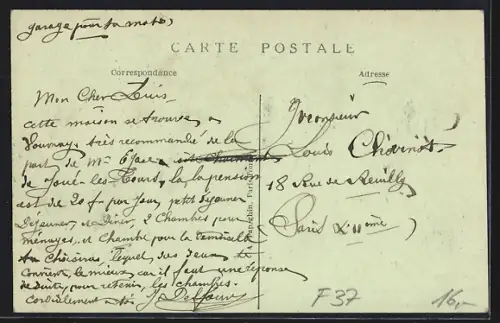 garage pour ta moto)
CARTE POSTALE
Correspondance
Adresse
Mon Cher Louis
Cette maison se trouve a
Vouvray, très recommandé de la
part de Mr
de Joué-les-Tours, la, la pension
est de 20 f. par Jour, petit Dejeuner
Déjeuner, et Diner, 2 Chambres pour
ménages, et Chambre pour la
tu Choisiras lequel, des deux te
convient le mieux, car il faut une réponse
de suite, pour retenir, les chambres.
Cordialement
Monsieur
Louis
18 Rue de Reuilly
Paris XII ème)
F37
16,-